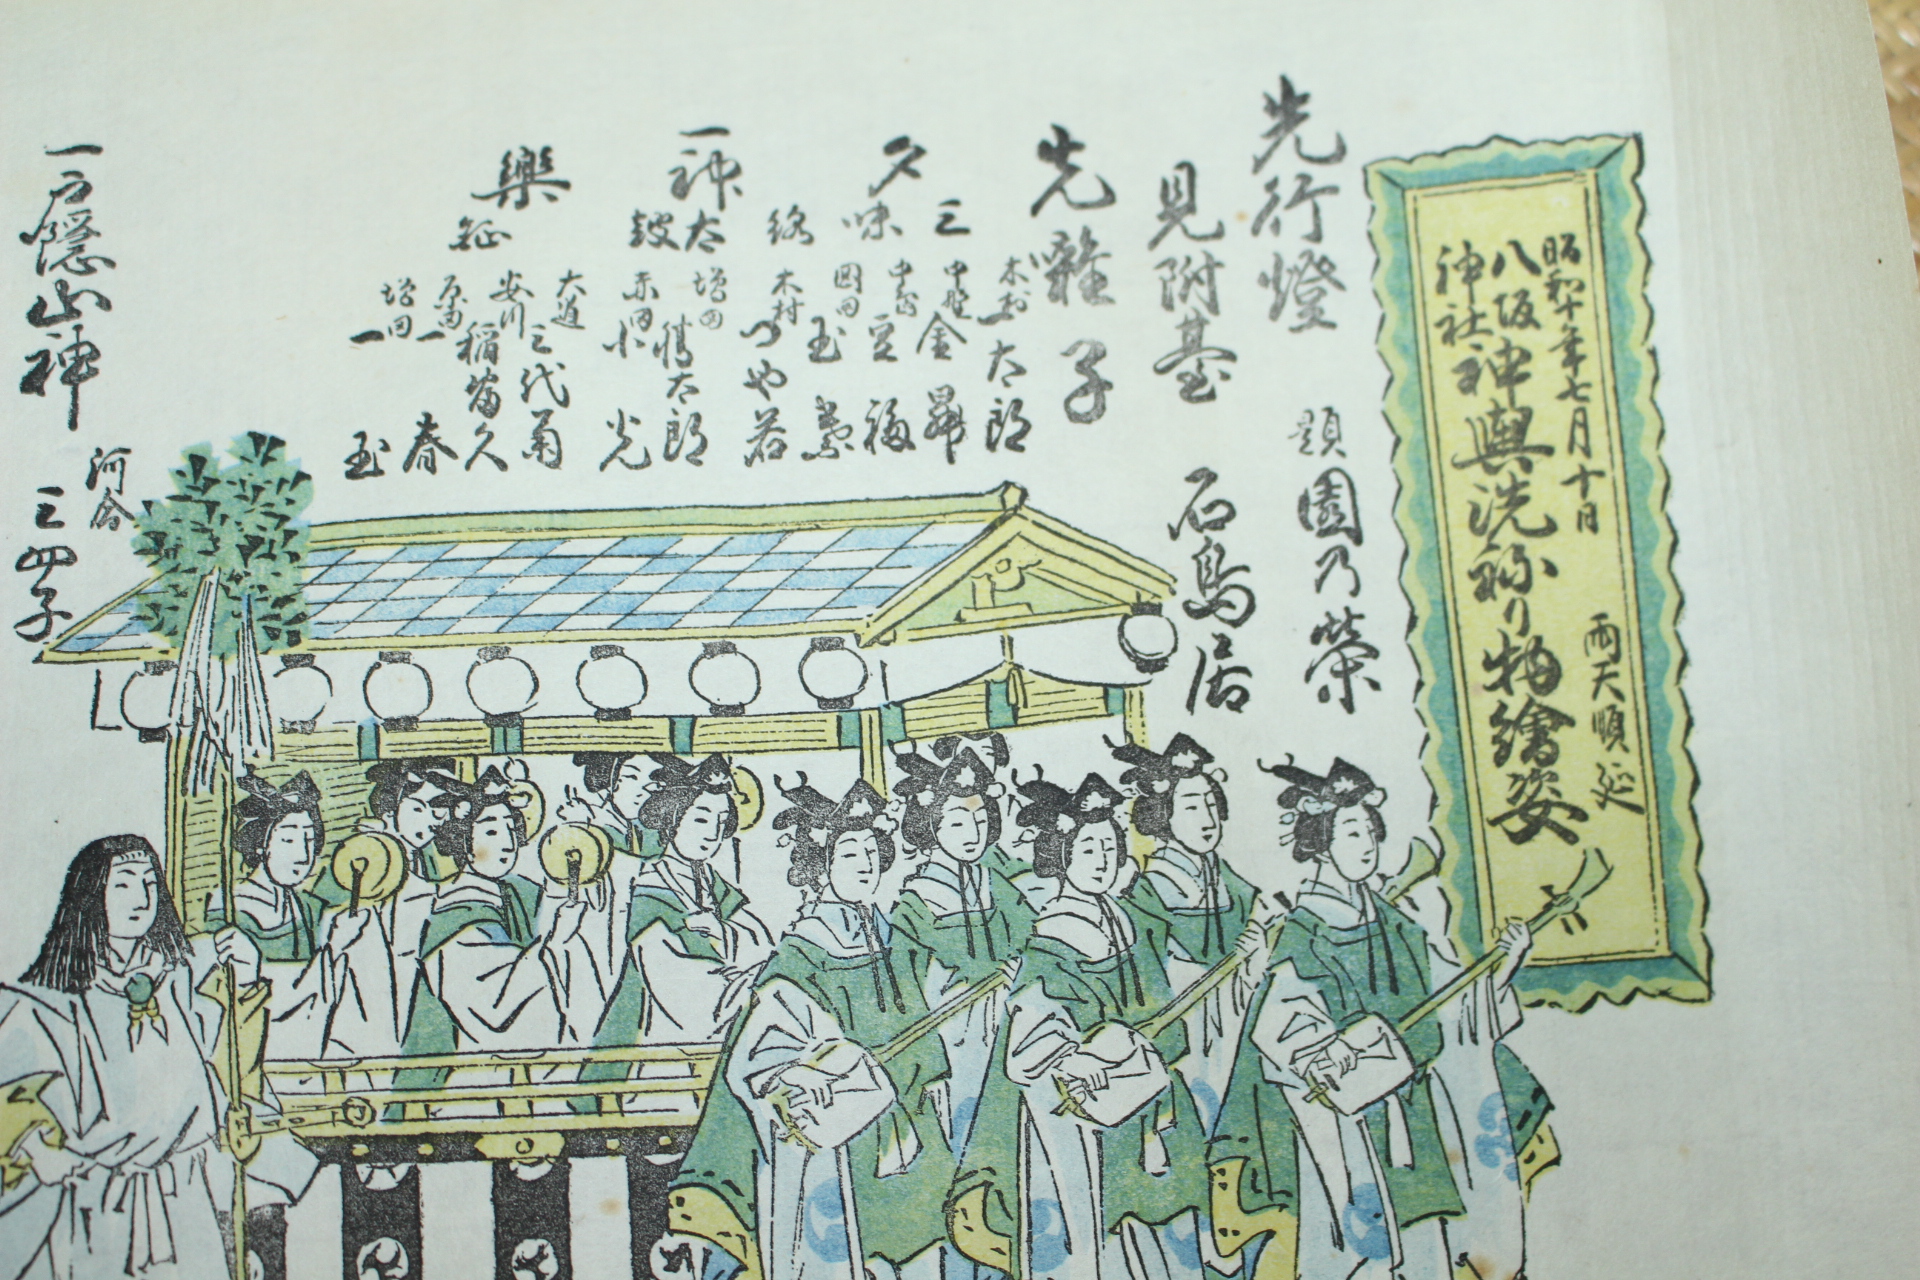 昭和十年七月十日 雨天順延
八坂
神社
神輿洗ねり物繪姿
先行燈
題 園乃榮
見附臺 石鳥居
先囃子
三味
木村 一太郎
中野 金昇
豆福
岡田 玉葉
木村 つや若
一神樂
太皷
増田 勝太郎
赤田 小光
鉦
大道 三代菊
安川 稲富久
一春
増田 一玉
一戸隠山神
河合 三四子